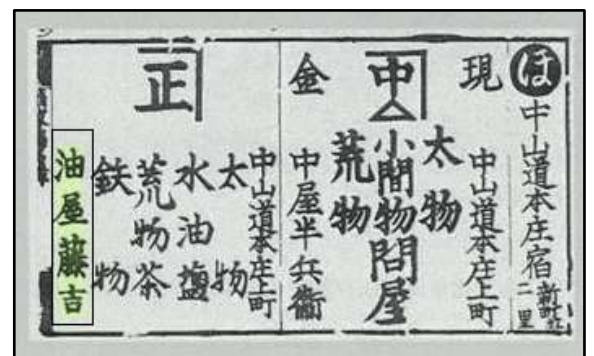 ほ
中山道本庄宿
新町江
二里
現
中
金
中山道本庄上町
太物
小間物問屋
荒物
中屋半兵衛
正
中山道本庄上町
太物
水油鹽
荒物茶
鉄物
油屋藤吉